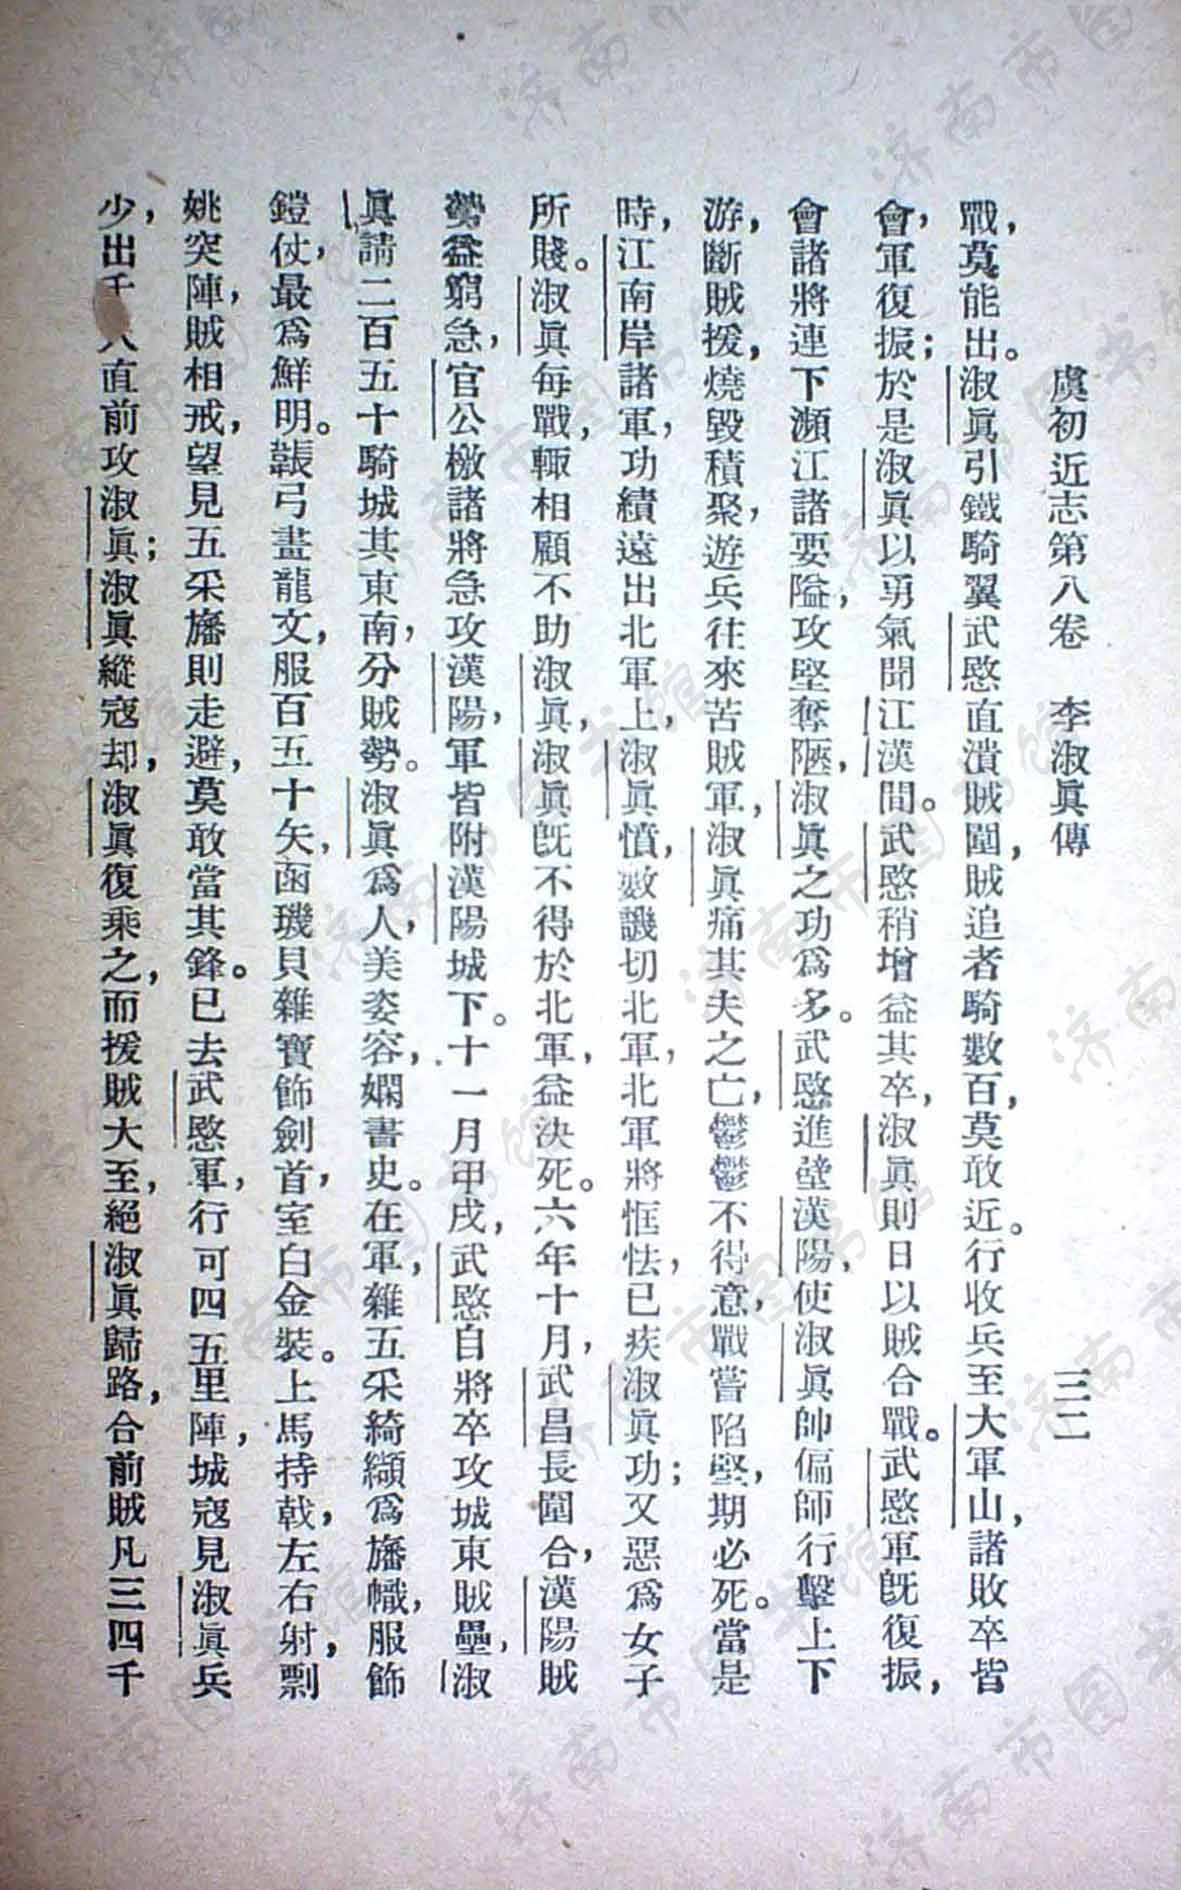 虞初近志第八卷　李淑眞傳　三二
戰，莫能出。淑眞引鐵騎翼武愍直潰賊圍，賊追者騎數百，莫敢近。行收兵至大軍山，諸敗卒皆
會，軍復振；於是淑眞以勇氣聞江漢間。武愍稍增益其卒，淑眞則日以賊合戰。武愍軍旣復振，
會諸將連下瀕江諸要隘，攻堅奪陿，淑眞之功爲多。武愍進壁漢陽，使淑眞帥偏師行擊上下
游，斷賊援，燒毀積聚，遊兵往來苦賊軍，淑眞痛其夫之亡，鬱鬱不得意，戰嘗陷堅，期必死。當是
時，江南岸諸軍，功績遠出北軍上，淑眞憤，數譏切北軍，北軍將恇怯，已疾淑眞功；又惡爲女子
所賤。淑眞每戰，輒相顧不助淑眞，淑眞旣不得於北軍，益決死。六年十月，武昌長圍合，漢陽賊
勢益窮急，官公檄諸將急攻漢陽，軍皆附漢陽城下。十一月甲戌，武愍自將卒攻城東賊壘，淑
眞請二百五十騎城其東南，分賊勢。淑眞爲人，美姿容，嫻書史。在軍，雜五采綺纈爲旛幟，服飾
鎧仗，最爲鮮明。韔弓畫龍文，服百五十矢，函璣貝雜寶飾劍首，室白金裝。上馬持戟，左右射，剽
姚突陣，賊相戒，望見五采旛則走避，莫敢當其鋒。已去武愍軍，行可四五里陣，城寇見淑眞兵
少，出千人直前攻淑眞；淑眞縱寇却，淑眞復乘之，而援賊大至，絕淑眞歸路，合前賊凡三四千
济南市图书馆